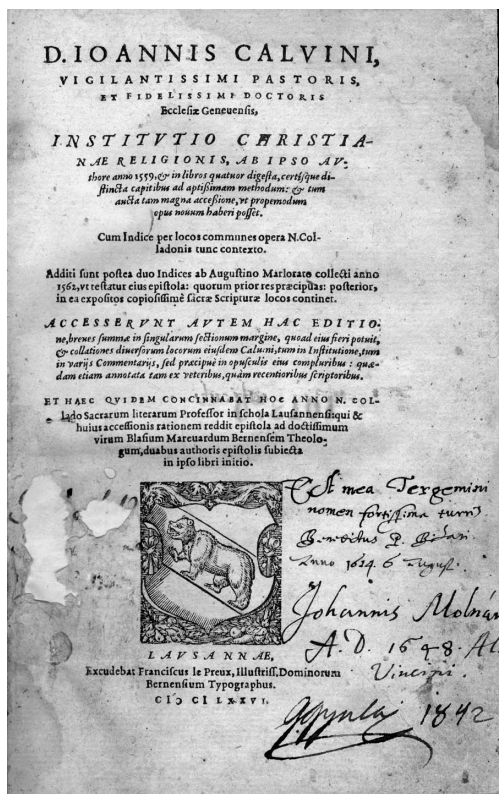 D. IOANNIS CALVINI,
VIGILANTISSIMI PASTORIS,
ET FIDELISSIMI DOCTORIS
Ecclesiæ Geneuensis,
INSTITVTIO CHRISTIA-
NAE RELIGIONIS, AB IPSO AV-
thore anno 1559, & in libros quatuor digesta, certísque di-
stincta capitibus ad aptißimam methodum: & tum
aucta tam magna acceßione, vt propemodum
opus nouum haberi posset.
Cum Indice per locos communes opera N. Col-
ladonis tunc contexto.
Additi sunt postea duo Indices ab Augustino Marlorato collecti anno
1562, vt testatur eius epistola: quorum prior res præcipuas: posterior,
in ea expositos copiosissimè sacræ Scripturæ locos continet.
ACCESSERVNT AVTEM HAC EDITIO-
ne, breues summæ in singularum sectionum margine, quoad eius fieri potuit,
& collationes diuersorum locorum eiusdem Caluini, tum in Institutione, tum
in varijs Commentarijs, sed præcipuè in opusculis eius compluribus: quæ-
dam etiam annotata tam ex veteribus, quàm recentioribus scriptoribus.
ET HAEC QVIDEM CONCINNABAT HOC ANNO N. COL-
lado Sacrarum literarum Professor in schola Lausannensi: qui &
huius accessionis rationem reddit epistola ad doctissimum
virum Blasium Marcuardum Bernensem Theolo-
gum, duabus authoris epistolis subiecta
in ipso libri initio.
Est mea Tergemini
nomen fortissima turris
Anno 1614. 6 August.
Johannis Molnár
A. D. 1648.
LAVSANNAE,
Excudebat Franciscus le Preux, Illustriss. Dominorum
Bernensium Typographus.
CIↃ CI LXXVI.
Gyula 1842